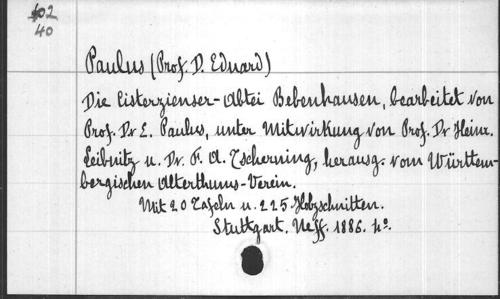 402
40
Paulus (Prof. D. Eduard)
Die Cisterzienser-Abtei Bebenhausen, bearbeitet von
Prof. Dr E. Paulus, unter Mitwirkung von Prof. Dr Heinr.
Leibnitz u. Dr. F. A. Tscherning, herausg. vom Württem-
bergischen Alterthums-Verein.
Mit 20 Tafeln u. 225 Holzschnitten.
Stuttgart. Neff. 1886. 4º.